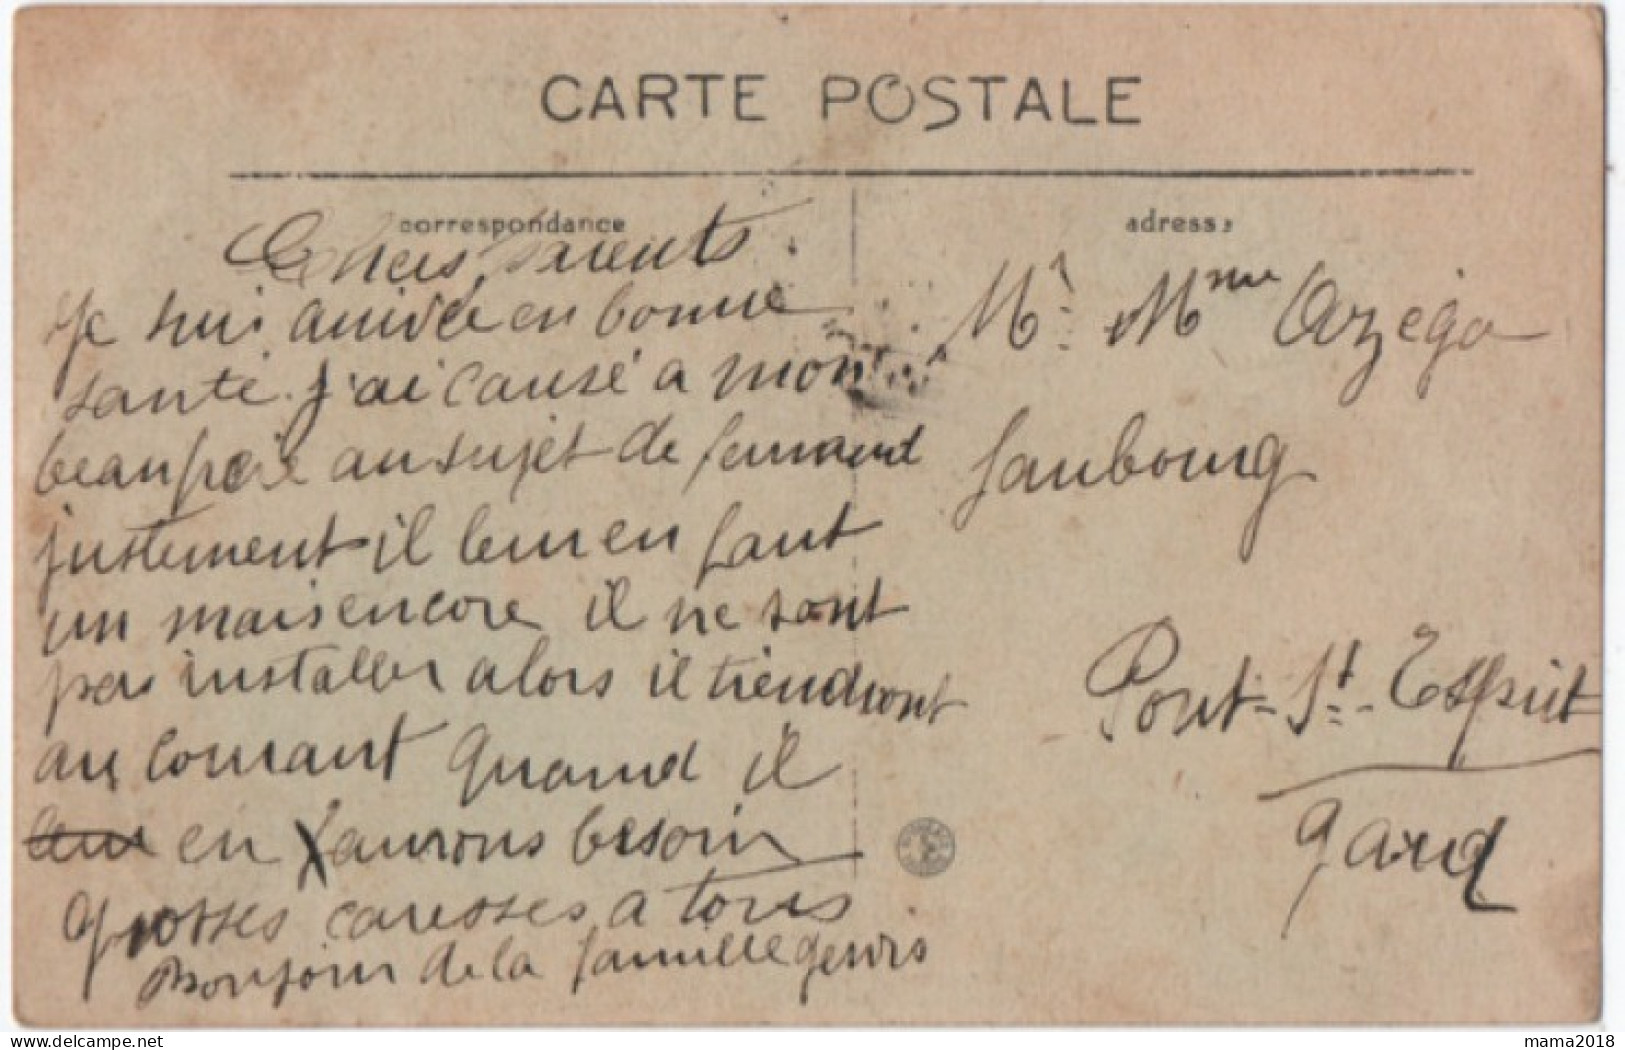 CARTE POSTALE
correspondance
Chers parents
Je suis arrivée en bonne
santé. j'ai causé a mon
beau père au sujet de fernand
justement il leur en faut
un mais encore il ne sont
pas installer alors il tiendront
au courant quand il
leur en aurons besoin
Grosses caresses a tous
Bonjour de la famille
adresse
Mr. Mme
faubourg
Pont-St-Esprit
Gard
delcampe.net
mama2018